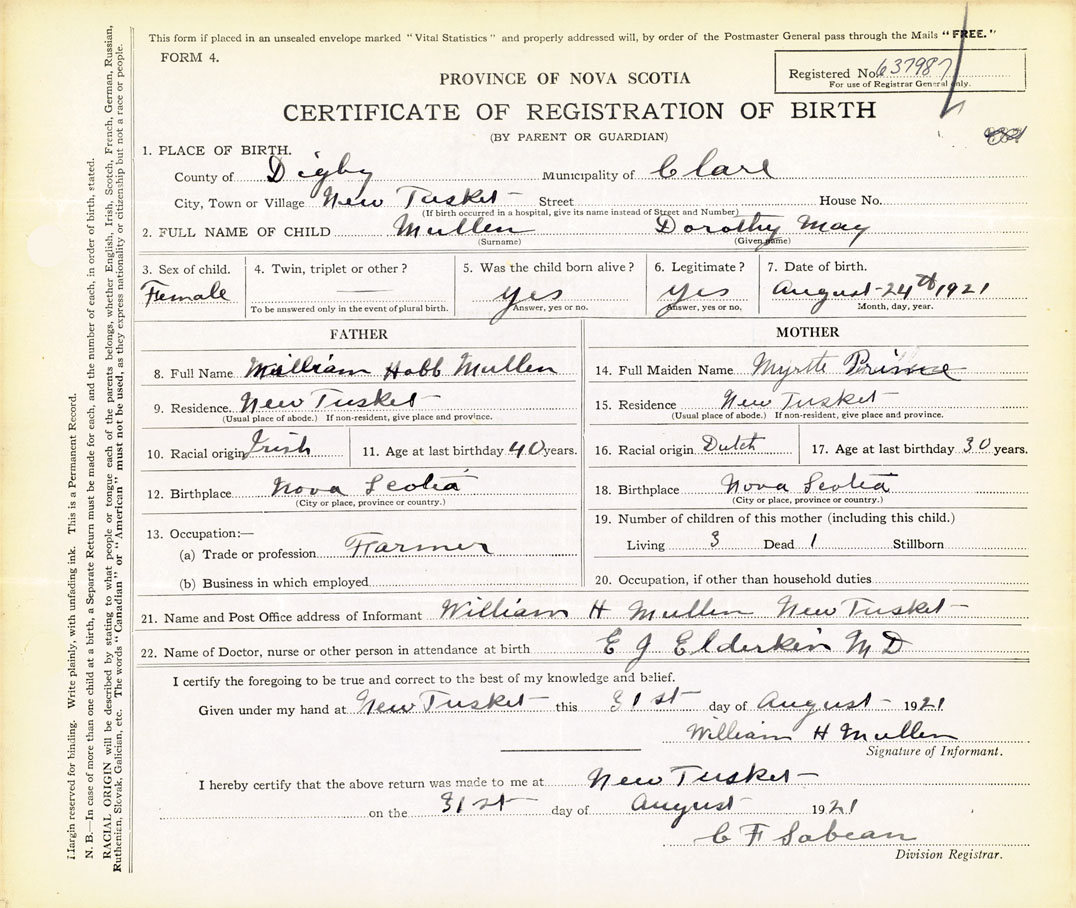 This form if placed in an unsealed envelope marked "Vital Statistics" and properly addressed will, by order of the Postmaster General pass through the Mails "FREE."
FORM 4.
PROVINCE OF NOVA SCOTIA
Registered No. 637987
For use of Registrar General only.
CERTIFICATE OF REGISTRATION OF BIRTH
(BY PARENT OR GUARDIAN)
1. PLACE OF BIRTH.
County of Digby Municipality of Clare
City, Town or Village New Tusket Street House No.
(If birth occurred in a hospital, give its name instead of Street and Number)
2. FULL NAME OF CHILD Mullen Dorothy May
(Surname) (Given name)
3. Sex of child. 4. Twin, triplet or other? 5. Was the child born alive? 6. Legitimate? 7. Date of birth.
Female yes yes August 24th 1921
To be answered only in the event of plural birth. Answer, yes or no. Answer, yes or no. Month, day, year.
FATHER
8. Full Name William Hobb Mullen
9. Residence New Tusket
(Usual place of abode.) If non-resident, give place and province.
10. Racial origin Irish 11. Age at last birthday 40 years.
12. Birthplace Nova Scotia
(City or place, province or country.)
13. Occupation:—
(a) Trade or profession Farmer
(b) Business in which employed
MOTHER
14. Full Maiden Name Myrtle
15. Residence New Tusket
(Usual place of abode.) If non-resident, give place and province.
16. Racial origin Dutch 17. Age at last birthday 30 years.
18. Birthplace Nova Scotia
(City or place, province or country.)
19. Number of children of this mother (including this child.)
Living 3 Dead 1 Stillborn
20. Occupation, if other than household duties
21. Name and Post Office address of Informant William H Mullen New Tusket
22. Name of Doctor, nurse or other person in attendance at birth E J Elderkin M D
I certify the foregoing to be true and correct to the best of my knowledge and belief.
Given under my hand at New Tusket this 31st day of August 1921
William H Mullen
Signature of Informant.
I hereby certify that the above return was made to me at New Tusket
on the 31st day of August 1921
C F Sabean
Division Registrar.
Margin reserved for binding. Write plainly, with unfading ink. This is a Permanent Record.
N. B.—In case of more than one child at a birth, a Separate Return must be made for each, and the number of each, in order of birth, stated.
RACIAL ORIGIN will be described by stating to what people or tongue each of the parents belongs, whether English, Irish, Scotch, French, German, Russian,
Ruthenian, Slovak, Galician, etc. The words "Canadian" or "American" must not be used, as they express nationality or citizenship but not a race or people.